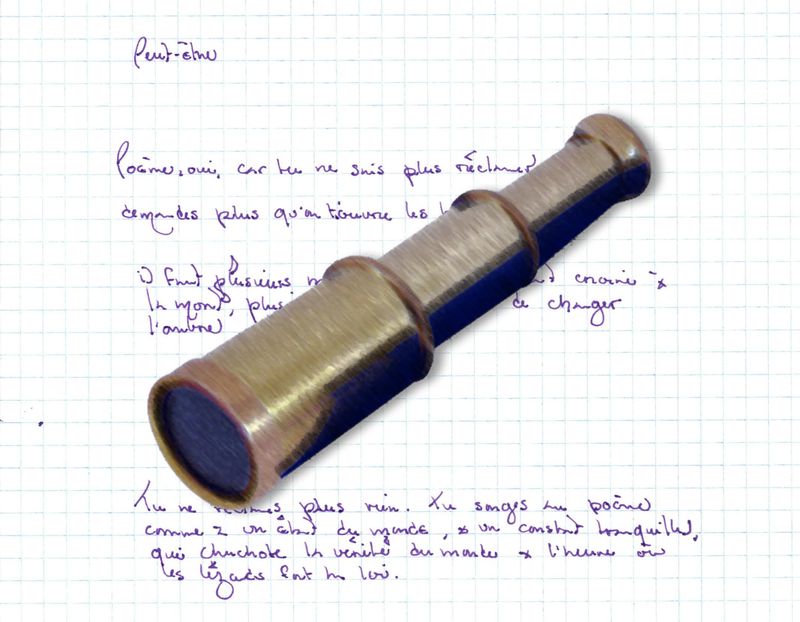 Peut-être
Poème, oui, car tu ne sais plus réclamer
demandes plus qu'on trouvre les
il faut plusieurs
la mort, plus de changer
l'ombre
Tu ne plus rien. Tu songes au poème
comme à un état du monde, à un constat tranquille,
qui chuchote la vérité du monde à l'heure où
les lézards font la loi.